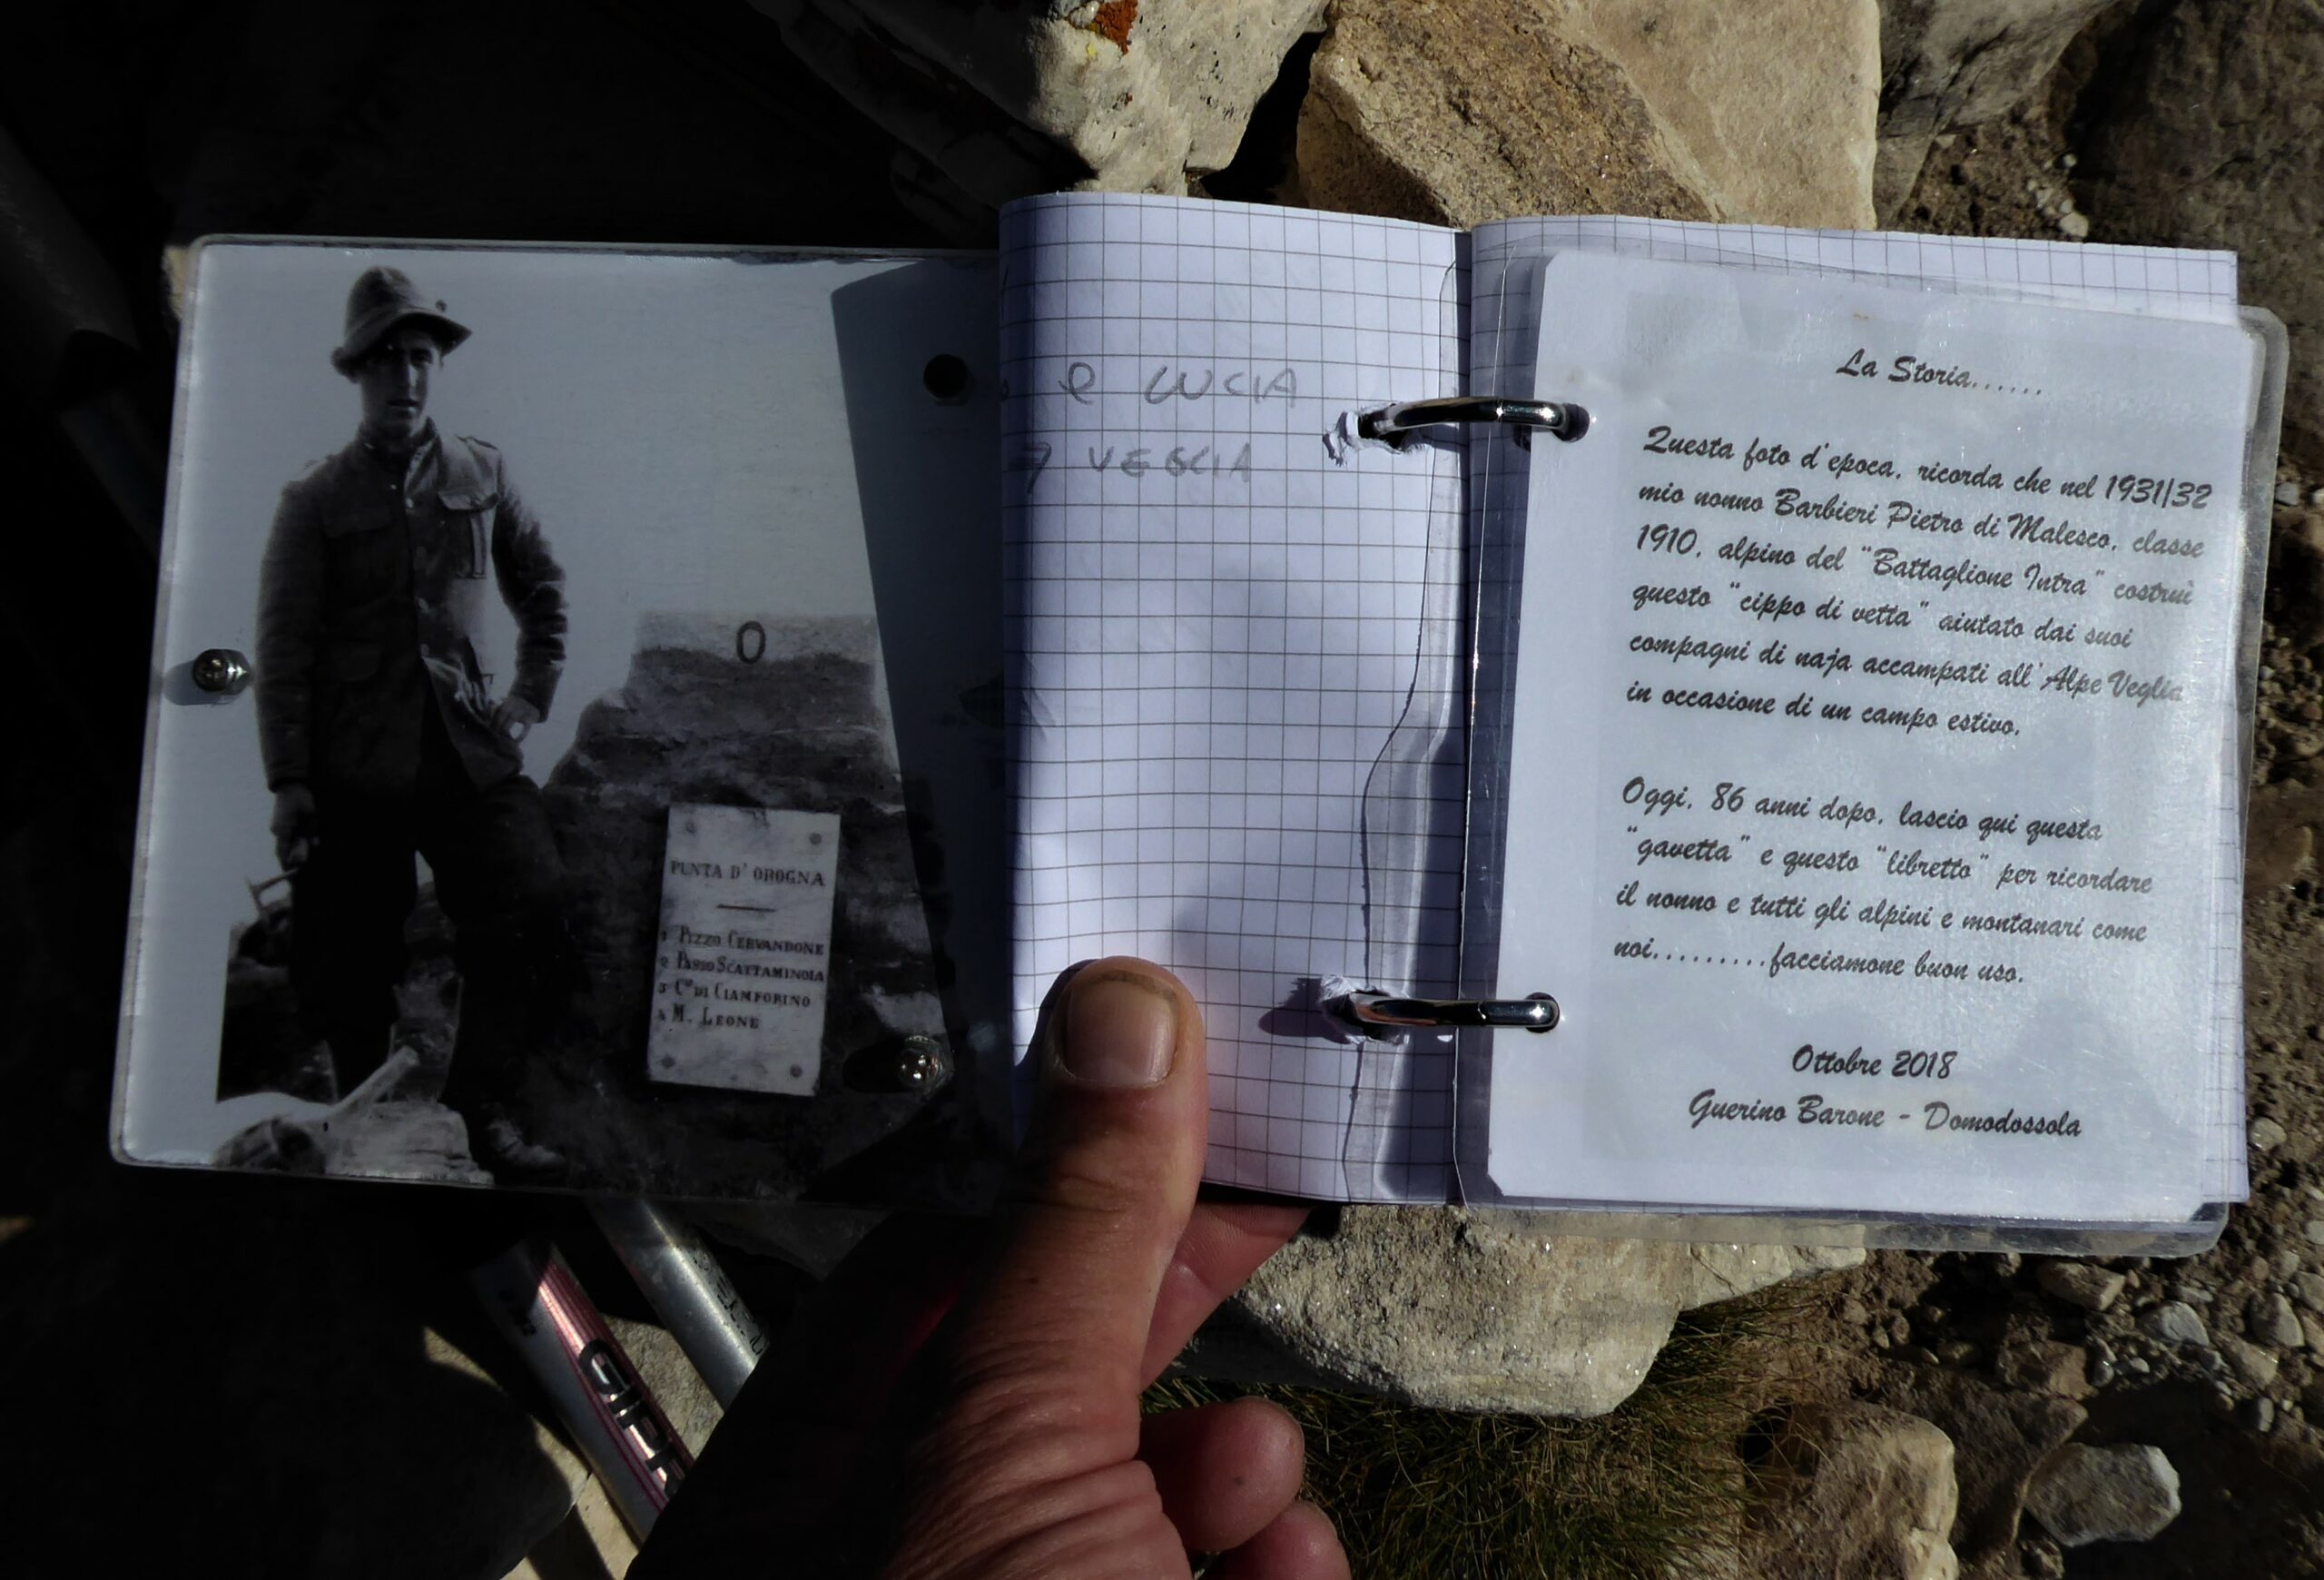 O
PUNTA D' OROGNA
1 PIZZO CERVANDONE
2 PASSO SCATTAMINOIA
3 Cª DI CIAMPORINO
4 M. LEONE
e LUCIA
VEGLIA
La Storia......
Questa foto d'epoca, ricorda che nel 1931/32
mio nonno Barbieri Pietro di Malesco, classe
1910, alpino del "Battaglione Intra" costruì
questo "cippo di vetta" aiutato dai suoi
compagni di naja accampati all'Alpe Veglia
in occasione di un campo estivo.
Oggi, 86 anni dopo, lascio qui questa
"gavetta" e questo "libretto" per ricordare
il nonno e tutti gli alpini e montanari come
noi.........facciamone buon uso.
Ottobre 2018
Guerino Barone - Domodossola